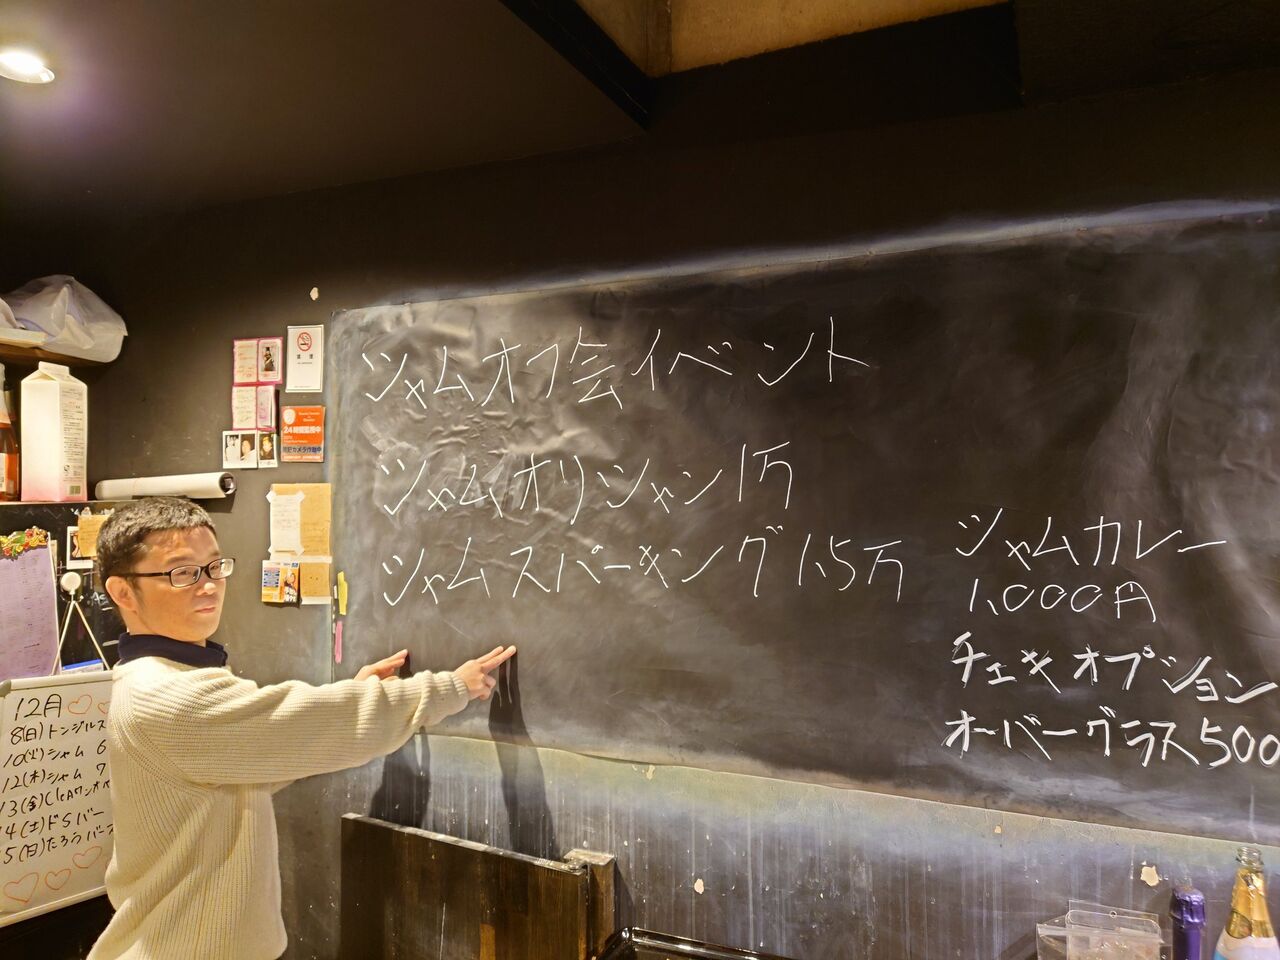 シャムオフ会イベント
シャムオリシャン1万
シャムスパーキング1.5万
シャムカレー
1,000円
チェキオプション
オーバーグラス500
禁煙
24時間監視中
防犯カメラ作動中
12月♡
8(日)トンジルス
10(火)シャム 6
12(木)シャム 7
13(金)CleAワンオペ
14(土)ドSバー
15(日)たろうバース